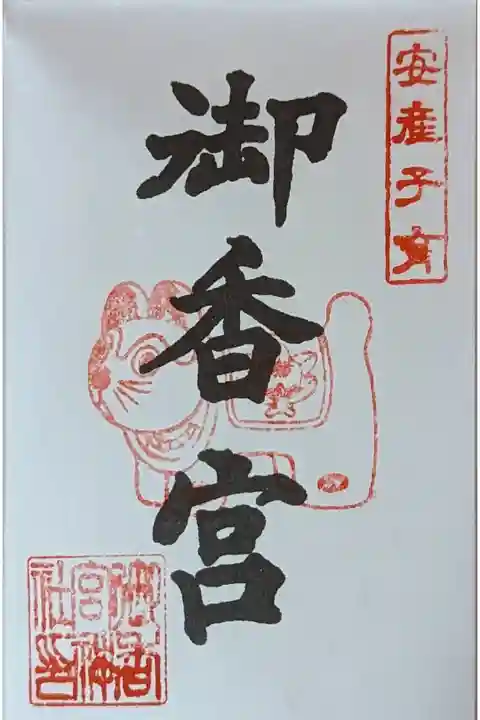 安産子育
御香宮
御香宮神社之印